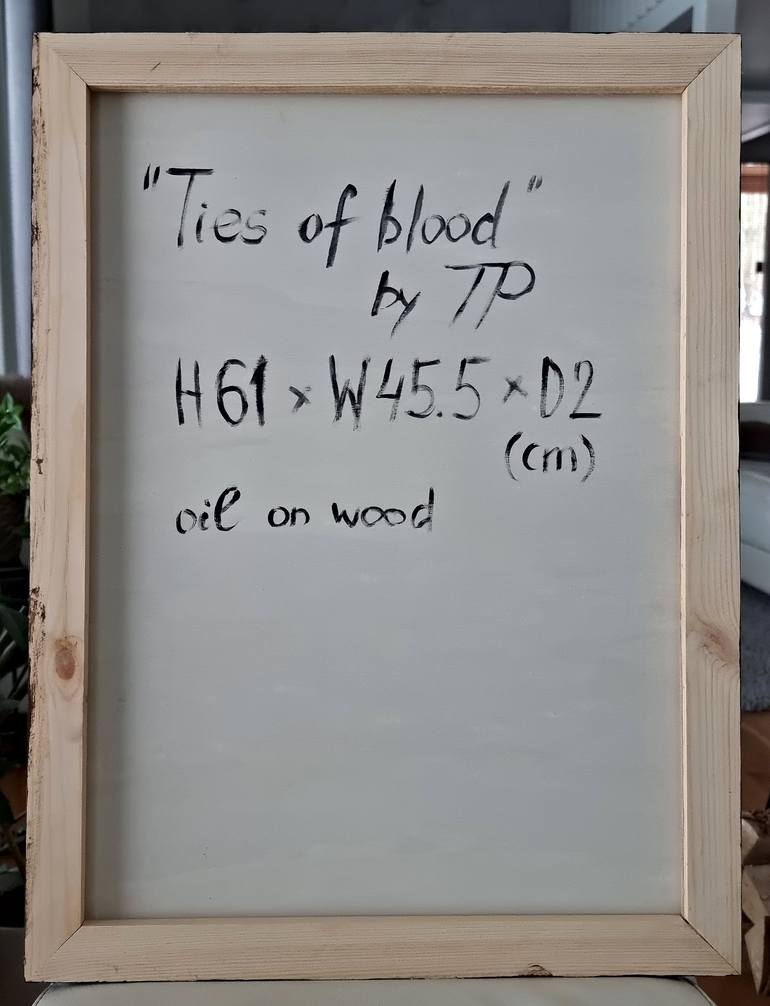 "Ties of blood"
by TP
H61 x W45.5 x D2
(cm)
oil on wood